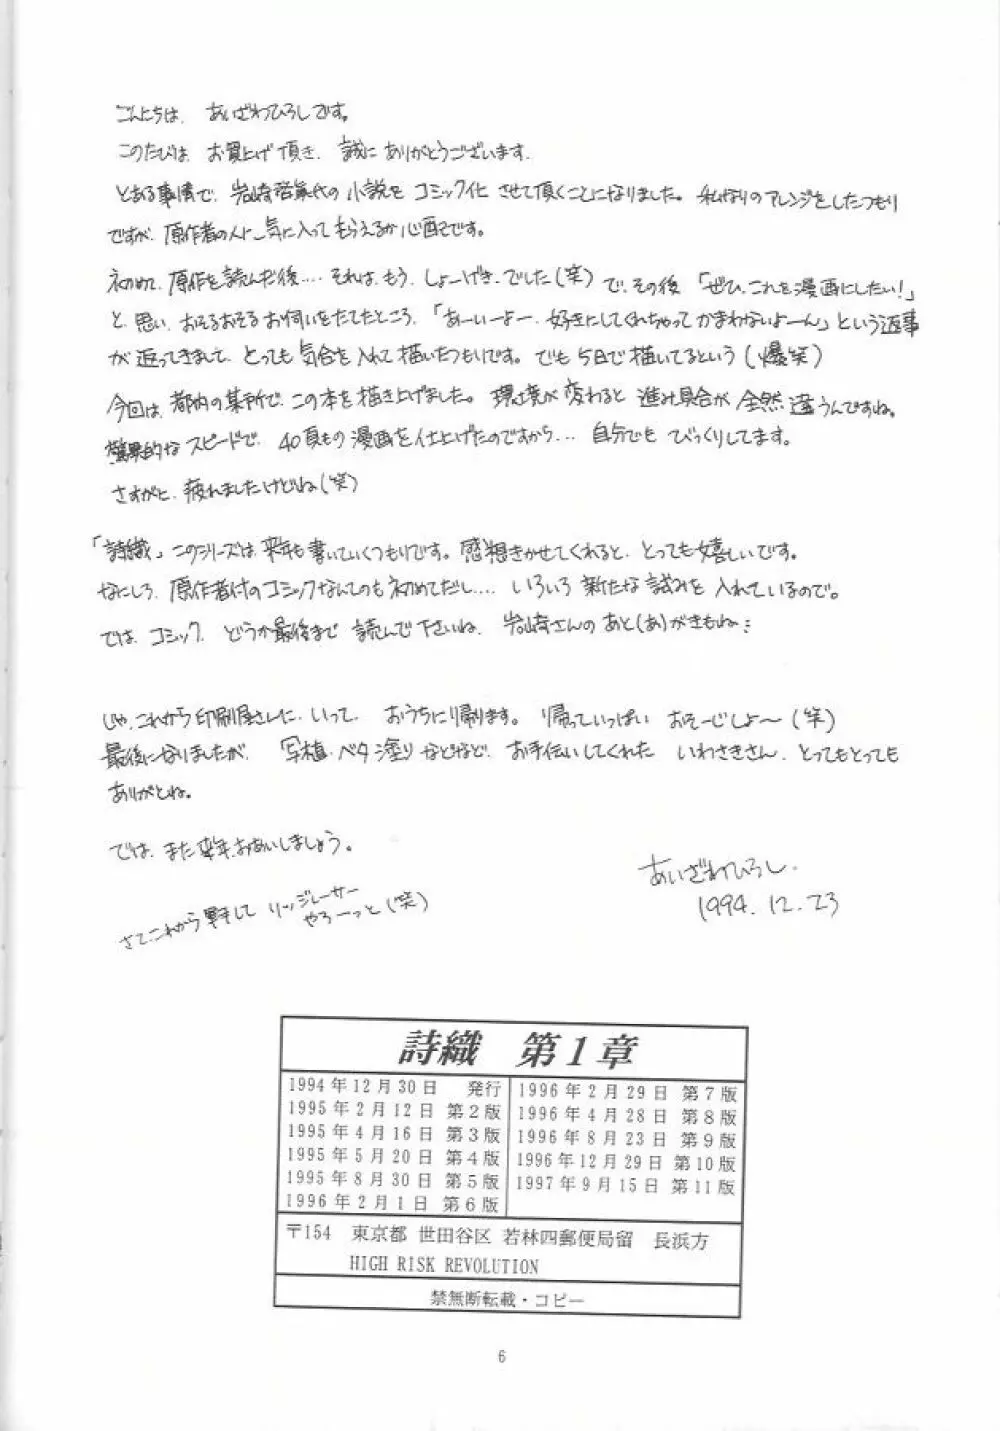 こんにちは、あいざわひろしです。
このたびは、お買上げ頂き、誠にありがとうございます。
とある事情で、岩崎啓眞代の小説をコミック化させて頂くことになりました。私なりのアレンジをしたつもり
ですが、原作者の人に、気に入ってもらえるか心配です。
初めて、原作を読んだ後‥‥それは、もう、しょーげき、でした(笑)で、その後「ぜひ、これを漫画にしたい!」
と、思い、おそるおそるお伺いをたてたところ、「あーいーよー、好きにしてくれちゃってかまわないよーん」という返事
が返ってきまして、とっても気合を入れて描いたつもりです。でも5日で描いてるという(爆笑)
今回は、都内の某所で、この本を描き上げました。環境が変わると進み具合が全然違うんですね。
驚異的なスピードで、40頁もの漫画を仕上げたのですから‥‥自分でもびっくりしてます。
さすがに、疲れましたけどね(笑)
「詩織」このシリーズは、来年も書いていくつもりです。感想きかせてくれると、とっても嬉しいです。
なにしろ、原作者付のコミックなんてのも初めてだし‥‥いろいろ新たな試みを入れているので。
では、コミック、どうか最後まで読んで下さいね、岩崎さんのあと(あ)がきもね‥
じゃ、これから印刷屋さんに、いって、おうちに帰ります。帰っていっぱいおそーじしよ〜(笑)
最後になりましたが、写植・ベタ塗りなどなど、お手伝いしてくれたいわさきさん、とってもとっても
ありがとね。
では、また来年、おあいしましょう。
さて、これから野手して リッジレーサー
やろーっと(笑)
あいざわひろし.
1994.12.23
詩織 第1章
1994年12月30日 発行
1995年2月12日 第2版
1995年4月16日 第3版
1995年5月20日 第4版
1995年8月30日 第5版
1996年2月1日 第6版
1996年2月29日 第7版
1996年4月28日 第8版
1996年8月23日 第9版
1996年12月29日 第10版
1997年9月15日 第11版
〒154 東京都 世田谷区 若林四郵便局留 長浜方
HIGH RISK REVOLUTION
禁無断転載・コピー
6